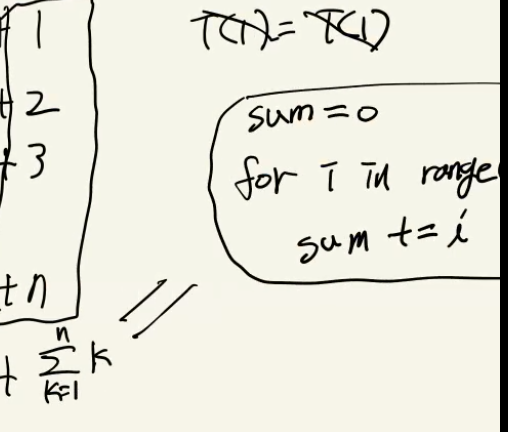 + 1
+ 2
+ 3
+ n
+ \sum_{k=1}^{n} k
T(1) = T(1)
sum = 0
for i in range
sum += i